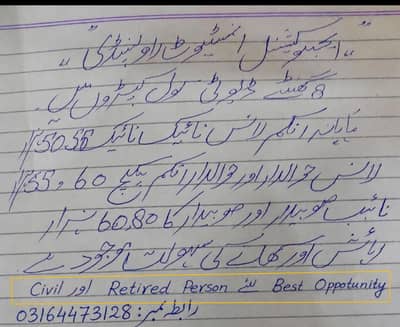 "ایجوکیشنل انسٹیٹیوٹ راولپنڈی"
8 گھنٹے ڈیوٹی سول کپڑوں میں۔
ماہانہ انکم لانس نائیک نائیک 50،55
لانس حوالدار اور حوالدار انکم پیکج 60 و 55
نائب صوبیدار اور صوبیدار کا 60،80 ہزار
رہائش اور کھانے کی سہولت موجود ہے
Civil اور Retired Person لئے Best Oppotunity
رابطہ نمبر: 03164473128